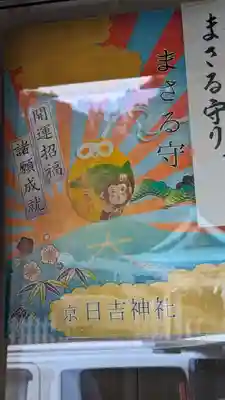 まさる守り
まさる守
開運招福
諸願成就
京日吉神社